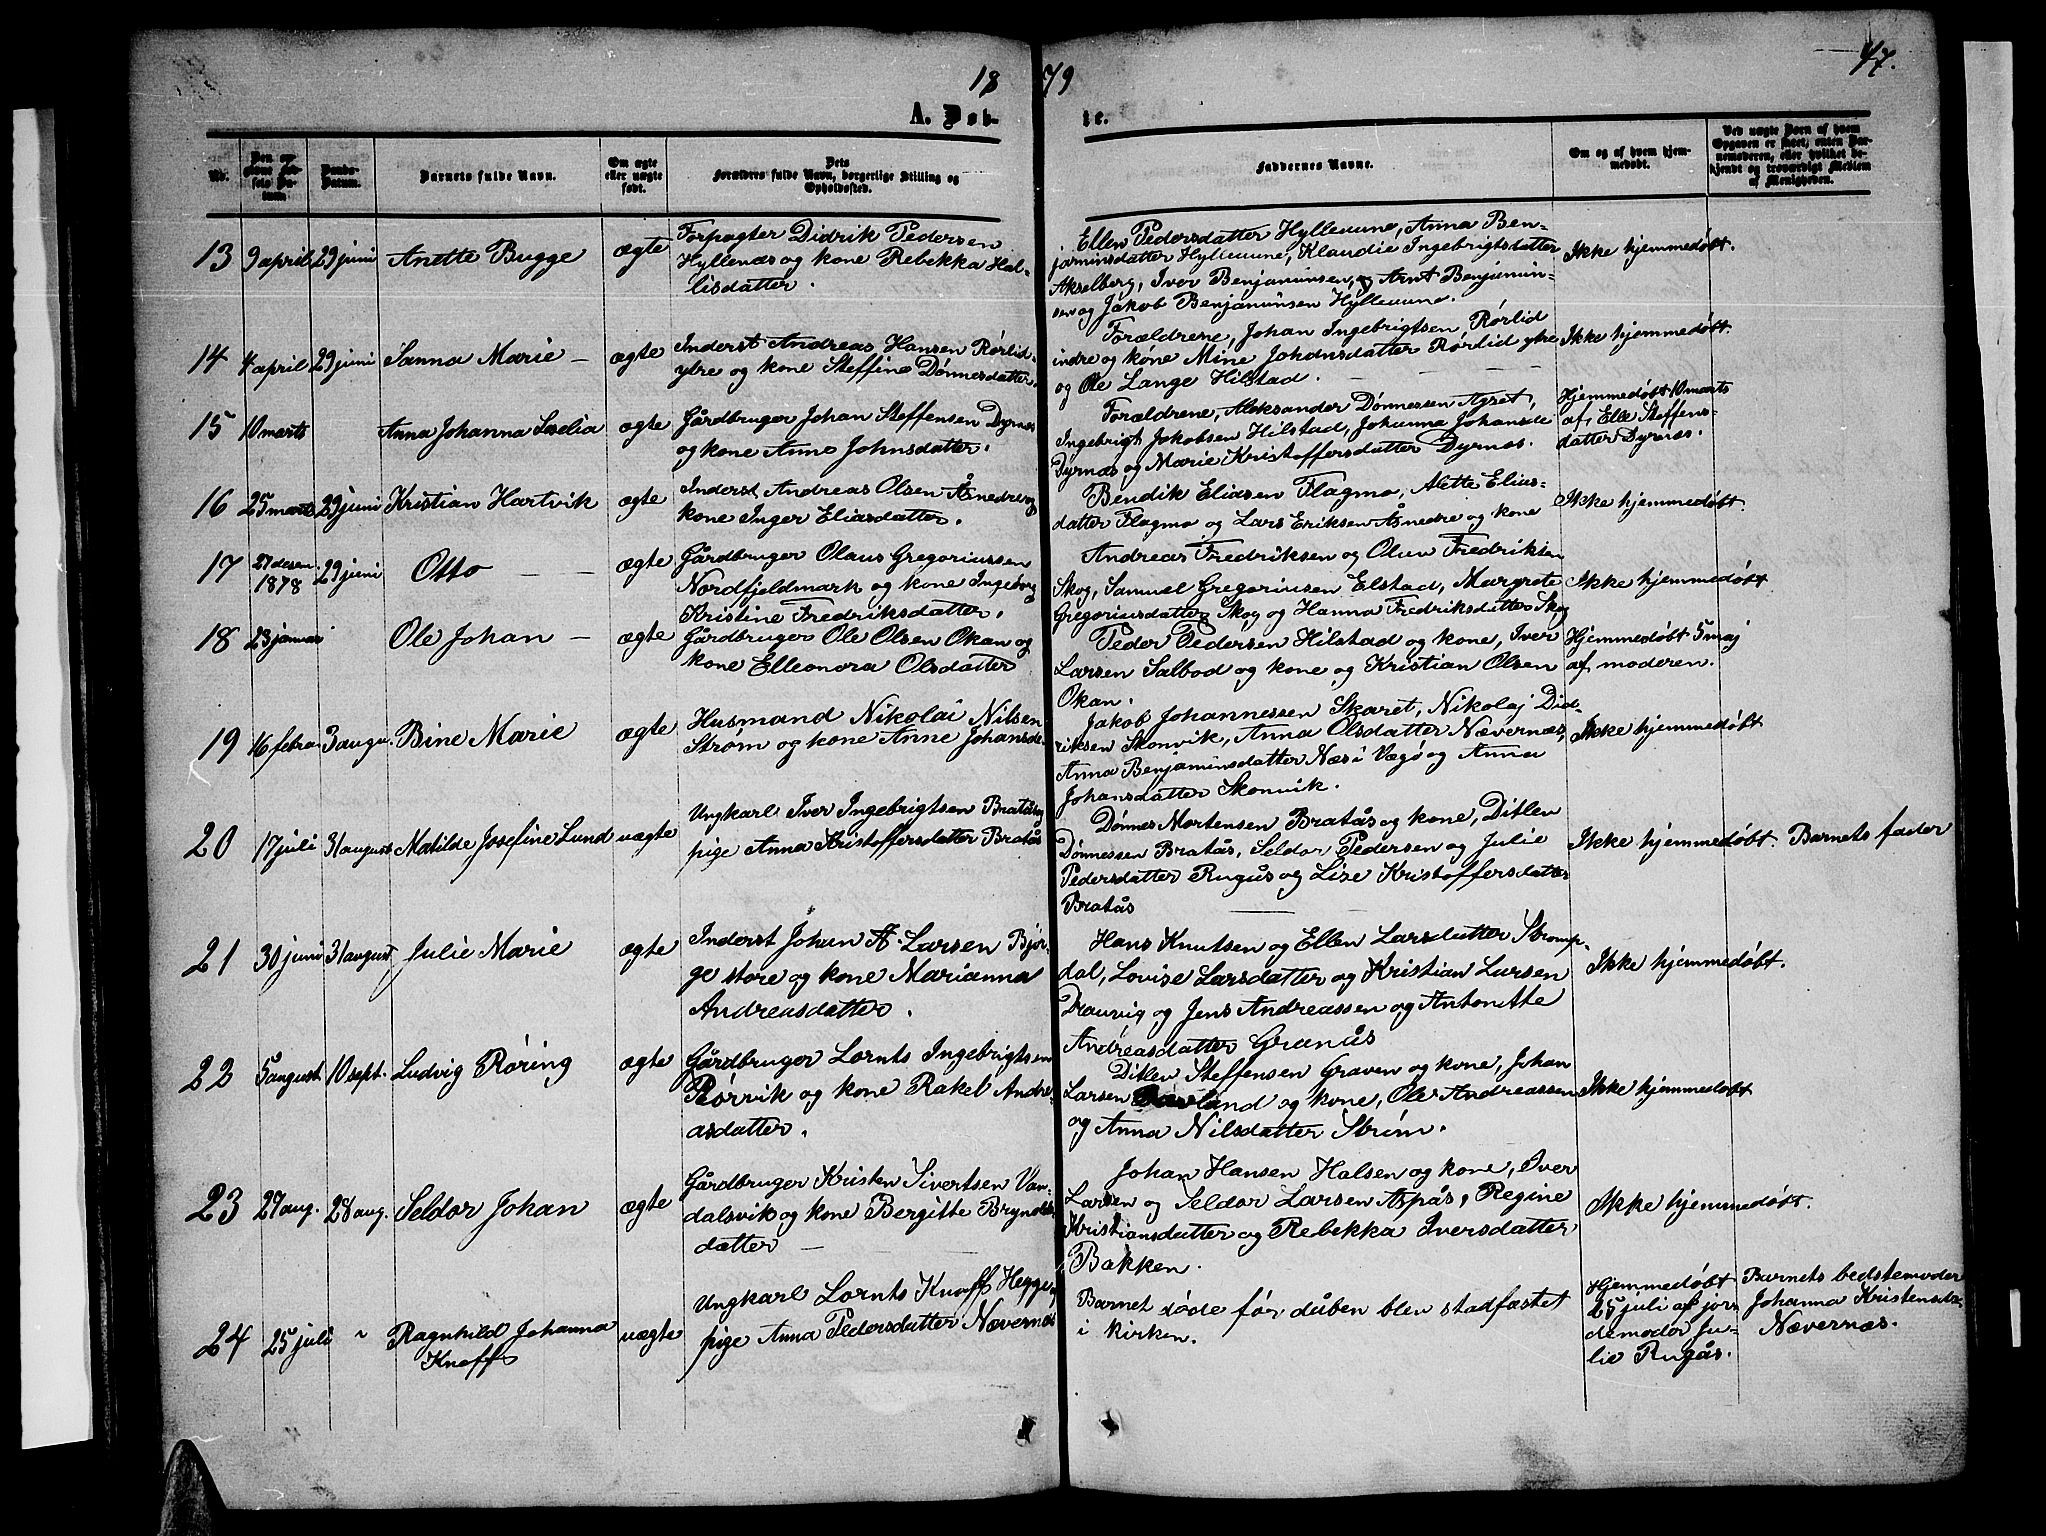 1879
47.
A. Døbte.
No.
Den opgivne Fødsels Datum
Daabs-Datum.
Barnets fulde Navn.
Om ægte eller uægte født.
Dets Forældres fulde Navn, borgerlige Stilling og Opholdssted.
Faddernes Navne.
Om og af hvem hjemmedøbt.
Ved uægte Børn af hvem Opgaven er skeet, enten Barnemoderen, eller hvilket bekjendt og troværdigt Medlem af Menigheden.
13 9 april 29 juni Anette Bugge ægte
Forpagter Didrik Pedersen
Hyllenæs og kone Rebekka Hal-
lisdatter.
Ellen Pedersdatter Hylleunne, Anna Ben-
jaminsdatter Hylleunne, Klaudie Ingebrigtsdatter
Akselberg, Iver Benjaminsen, Arnt Benjamin-
sen og Jakob Benjaminsen Hylleunne.
Ikke hjemmedøbt.
14 4 april 29 juni Sanna Marie – ægte
Inderst Andreas Hansen Rørlid
ytre og kone Steffine Dønnesdatter.
Forældrene, Johan Ingebrigtsen, Rørlid
indre og kone Mine Johansdatter Rørlid ytre
og Ole Lange Hilstad.
Ikke hjemmedøbt.
15 10 marts Anna Johanna Selia ægte
Gårdbruger Johan Steffensen Dyrnæs
og kone Anne Johnsdatter.
Forældrene, Aleksander Dønnessen Agset,
Ingebrigt Jakobsen Hilstad, Johanna Johansda
Dyrnæs og Marie Kristoffersdatter Dyrnæs.
Hjemmedøbt 10 marts
af Elle Steffens-
datter Dyrnæs.
16 25 marts 29 juni Kristian Hartvik ægte
Inderst Andreas Olsen Åsnedre og
kone Inger Eliasdatter.
Bendik Eliasen Flagmo, Alette Elias-
datter Flagmo og Lars Eriksen Åsnedre og kone
Ikke hjemmedøbt.
17 27 decem. 1878 29 juni Otto – – ægte
Gårdbruger Olaus Gregoriussen
Nordfjeldmark og kone Ingeborg
Kristine Fredriksdatter.
Andreas Fredriksen og Oluv Fredriksen
Skog, Samuel Gregoriusen Elstad, Margrete
Gregoriusdatter Skog og Hanna Fredriksdatter Skog
Ikke hjemmedøbt
18 23 januar Ole Johan – ægte
Gårdbruger Ole Olsen Okan og
kone Elleonora Olsdatter
Peder Pedersen Hilstad og kone, Iver
Larsen Salbod og kone og Kristian Olsen
Okan.
Hjemmedøbt 5 maj
af moderen.
19 16 febra. 3 augu. Bine Marie ægte
Husmand Nikolai Nilsen
Strøm og kone Anne Johansda.
Jakob Johannessen Skaret, Nikolaj Did-
riksen Skonvik, Anna Olsdatter Nævernæs,
Anna Benjaminsdatter Næs i Vægø og Anna
Johansdatter Skonvik.
Ikke hjemmedøbt
20 17 juli 31 august Matilde Josefine Lund uægte
Ungkarl Iver Ingebrigtsen Bratås og
pige Anna Kristoffersdatter Bratås
Dønnes Mortensen Bratås og kone, Ditlev
Dønnessen Bratås, Seldor Pedersen og Julie
Pedersdatter Rugås og Lise Kristoffersdatter
Bratås
Ikke hjemmedøbt. Barnets fader
21 30 juni 31 august Julie Marie ægte
Inderst Johan A. Larsen Bjør-
ge store og kone Marianna
Andreasdatter.
Hans Knutsen og Ellen Larsdatter Stromp-
dal, Lovise Larsdatter og Kristian Larsen
Drauvig og Jens Andreassen og Antonette
Andreasdatter Granås
Ikke hjemmedøbt.
22 5 august 10 sept. Ludvig Røring ægte
Gårdbruger Lornts Ingebrigtsen
Rørvik og kone Rakel Andre-
asdatter.
Ditlev Steffensen Graven og kone, Johan
Larsen land og kone, Ole Andreassen
og Anna Nilsdatter Strøm.
Ikke hjemmedøbt
23 27 aug. 28 aug. Seldor Johan ægte
Gårdbruger Kristen Sivertsen Van-
dalsvik og kone Bergitte Brynolds-
datter –
Johan Hansen Halsen og kone, Iver
Larsen og Seldor Larsen Aspås, Regine
Kristiansdatter og Rebekka Iversdatter
Bakken.
Ikke hjemmedøbt.
24 25 juli " Ragnhild Johanna uægte
Knoff
Ungkarl Lornts Knoff Hegge og
pige Anna Pedersdatter Nævernæs
Barnet døde før dåben blev stadfæstet
i kirken.
Hjemmedøbt
25 juli af jor-
demoder Ju-
lie Rugås.
Barnets bedstemoder
Johanna Kristensda.
Nævernæs.